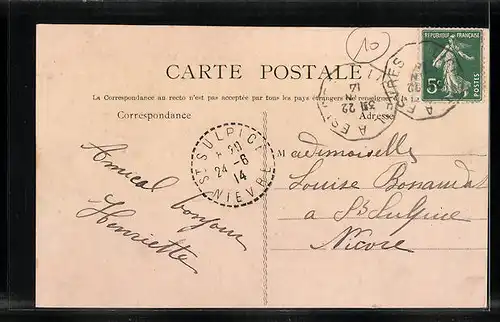 10
REPUBLIQUE FRANÇAISE
5c
POSTES
CARTE POSTALE
La Correspondance au recto n'est pas acceptée par tous les pays étrangers
Correspondance
Adresse
St SULPICE
24 - 6
14
NIEVRE
22
Amical bonjour
Henriette
Mademoiselle
Louise
a St Sulpice
Nièvre